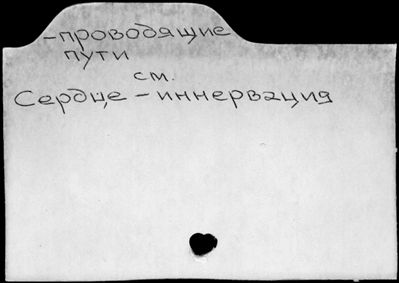 -проводящие
пути
см.
Сердце - иннервация